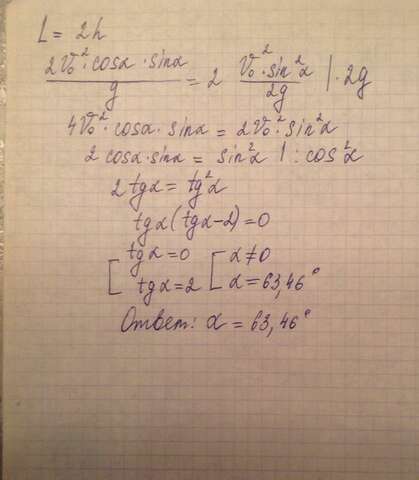 L = 2h
2V₀²·cosα·sinα / g = 2 V₀²·sin²α / 2g |·2g
4V₀²·cosα·sinα = 2V₀²·sin²α
2 cosα·sinα = sin²α |:cos²α
2 tgα = tg²α
tgα(tgα-2)=0
[ tgα=0 [ α≠0
tgα=2 α=63,46°
Ответ: α = 63,46°